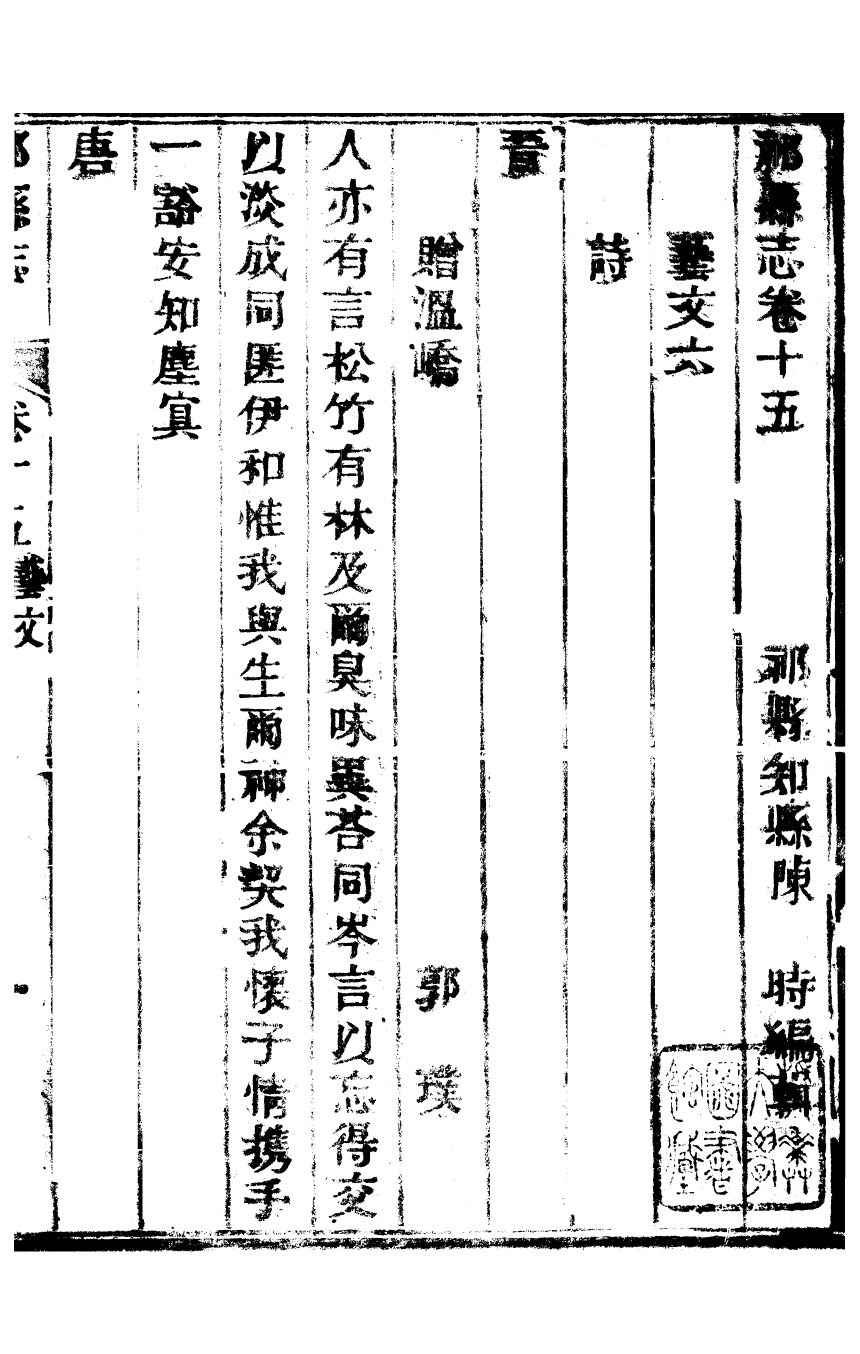 祁縣志卷十五　祁縣知縣陳　時編輯
藝文六
詩
晋
贈溫嶠　郭　璞
人亦有言松竹有林及爾臭味異苔同岑言以忘得交
以淡成同匪伊和惟我與生爾神余契我懷子情携手
一豁安知塵寘
唐
祁縣志　卷十五藝文